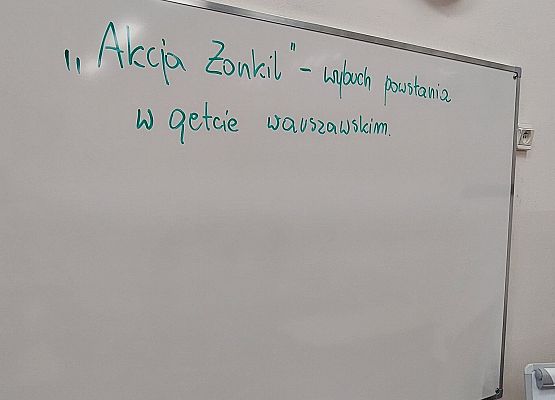 „Akcja Żonkil" - wybuch powstania
w getcie warszawskim.